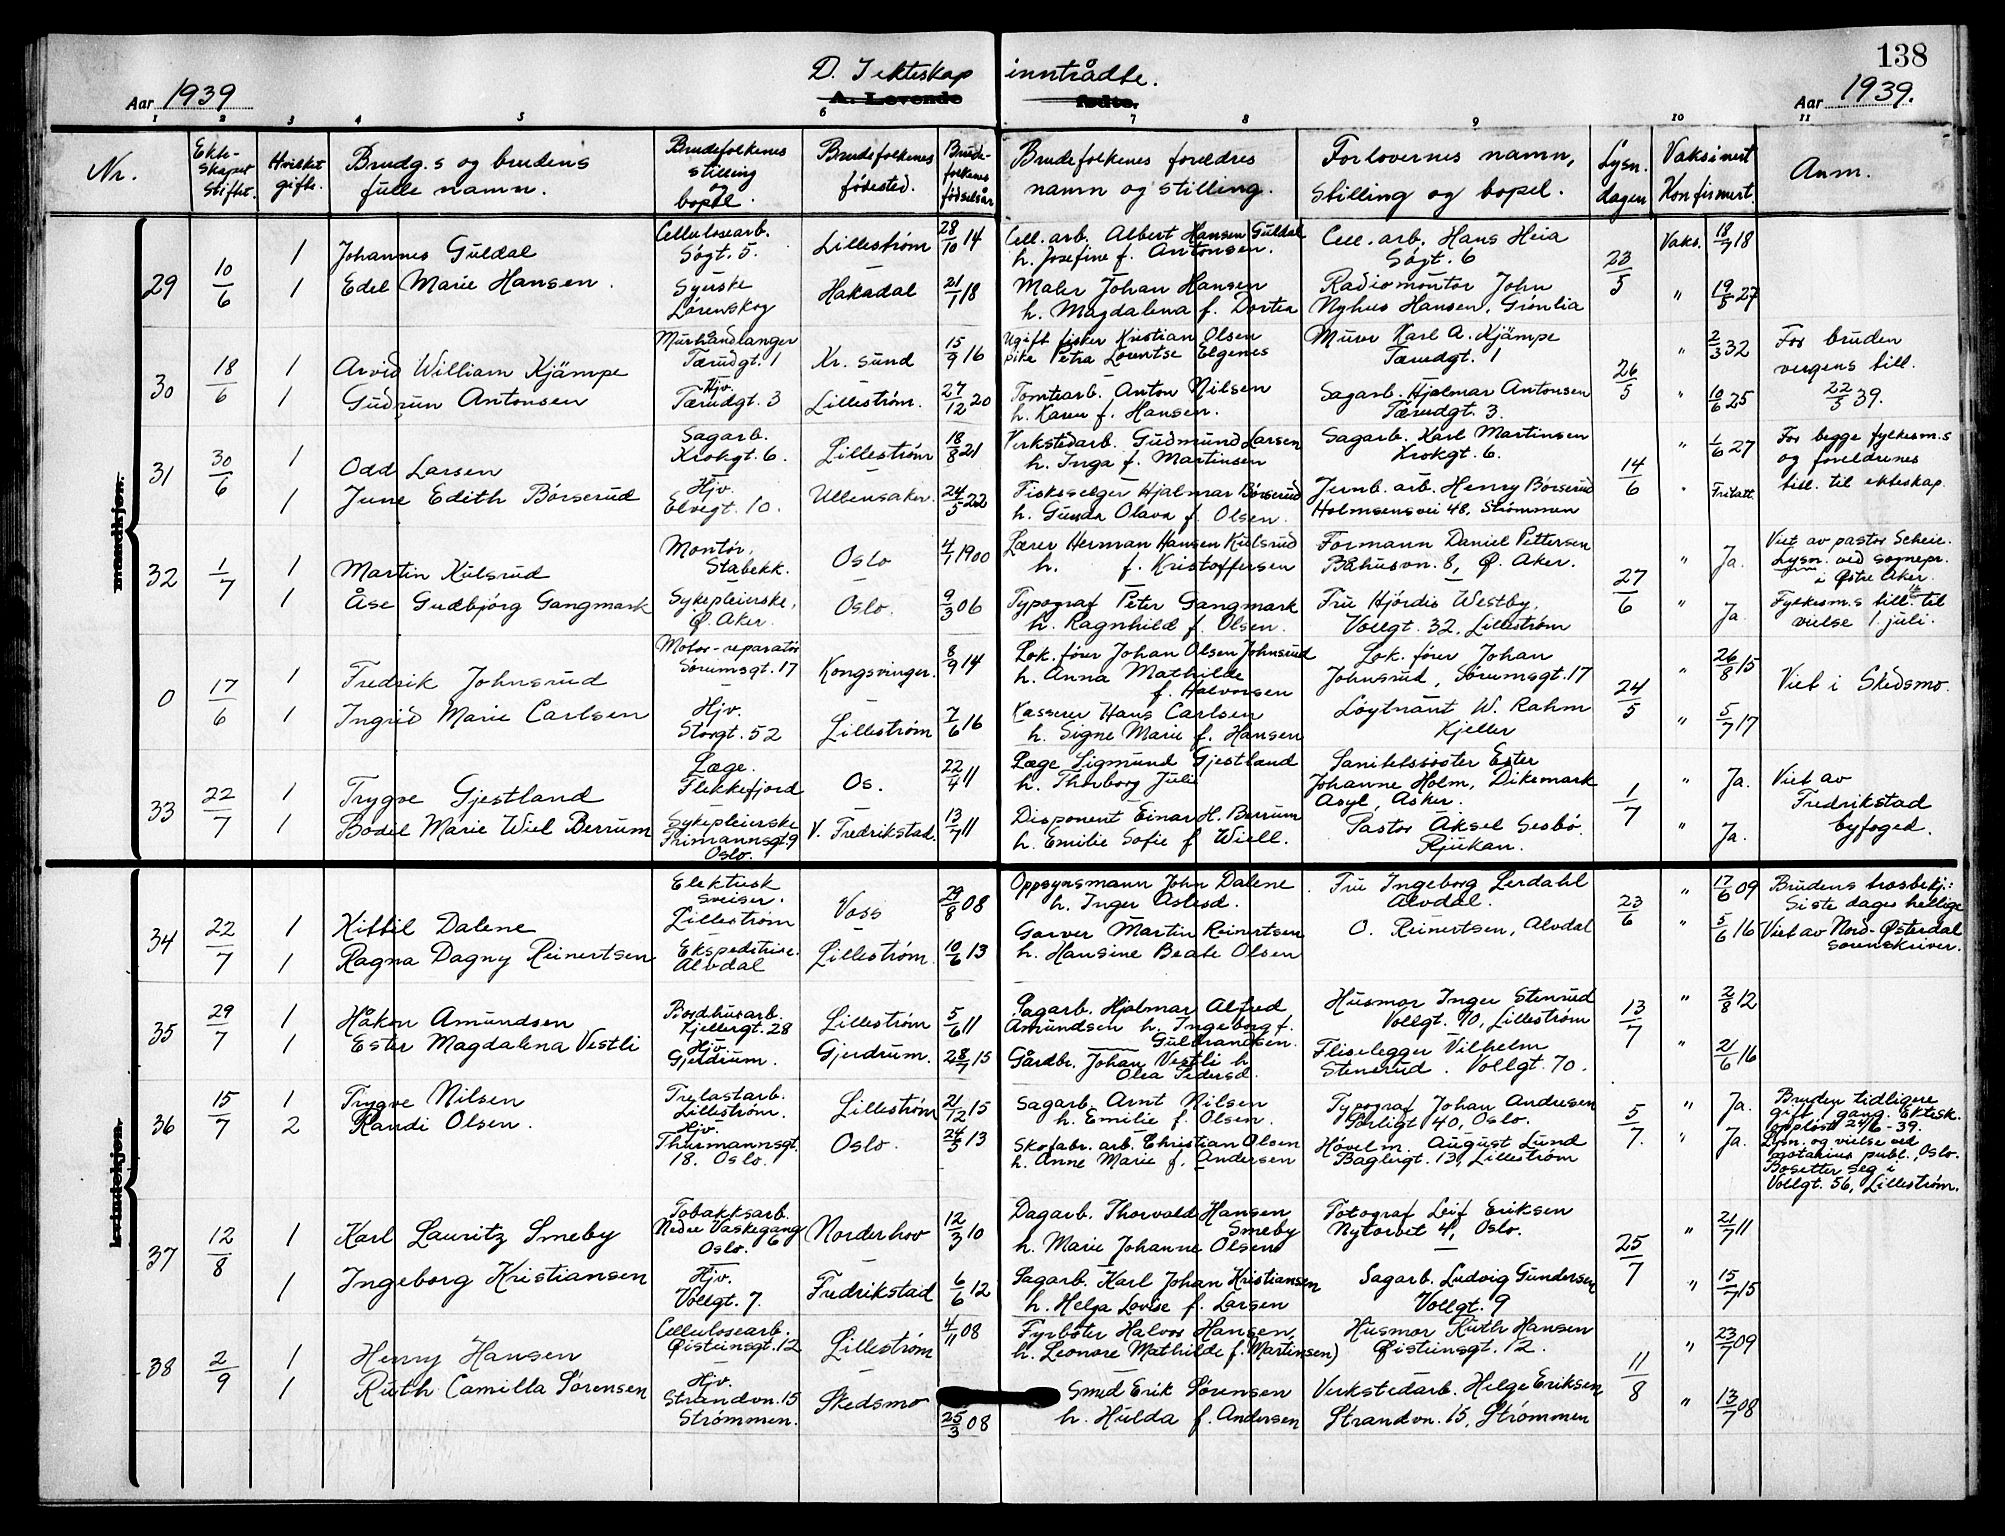 138
D. I ekteskap inntrådte.
A. Levende fødte.
Aar 1939
Aar 1939.
1 2 3 4 5 6 7 8 9 10 11
Nr. | Ekte-skapet stiftet. | Hvilket gifte. | Brudg.s og brudens fulle namn. | Brudefolkenes stilling og bopel. | Brudefolkenes fødested. | Brude-folkenes fødselsår | Brudefolkenes foreldres namn og stilling. | Forlovernes namn, stilling og bopel. | Lysn. dagen | Vaksinert Konfirmert. | Anm.
mandkjøn.
29 | 10/6 | 1 | Johannes Guldal | Cellulosearb. Søgt. 5. | Lillestrøm | 28/10 14 | Cell. arb. Albert Hansen Guldal h. Josefine f. Antonsen. | Cell. arb. Hans Heia Søgt. 6 | 23/5 | Vaks. | 18/7 18
1 | Edel Marie Hansen. | Syerske Lørenskog | Hakadal | 21/7 18 | Maler Johan Hansen h. Magdalena f. Dortea | Radiomontør John Nyhus Hansen, Grønlia | " | 19/5 27
30 | 18/6 | 1 | Arvid William Kjämpe | Murhandlanger Tærudgt. 1 | Kr. sund | 15/9 16 | Ugift fisker Kristian Olsen pike Petra Lorentse Elgenes | Murer Karl A. Kjämpe Tærudgt. 1 | 26/5 | " | 2/3 32 | For bruden vergens till. 22/5 39.
1 | Gudrun Antonsen | Hjv. Tærudgt. 3 | Lillestrøm. | 27/12 20 | Tomtearb. Anton Nilsen h. Karen f. Hansen. | Sagarb. Hjalmar Antonsen Tærudgt. 3. | " | 10/6 25
31 | 30/6 | 1 | Odd Larsen | Sagarb. Krokgt. 6. | Lillestrøm | 18/8 21 | Verkstedarb. Gudmund Larsen h. Inga f. Martinsen | Sagarb. Karl Martinsen Krokgt. 6. | 14/6 | " | 1/6 27 | For begge fylkesm.s og foreldrenes till. til ekteskap.
1 | June Edith Børserud | Hjv. Elvegt. 10. | Ullensaker. | 24/5 22 | Fiskeselger Hjalmar Børserud h. Gunda Olava f. Olsen. | Jernb. arb. Henry Børserud Holmsensvei 48, Strømmen | " | Fritatt.
32 | 1/7 | 1 | Martin Kulsrud | Montør, Stabekk. | Oslo | 4/7 1900 | Lærer Herman Hansen Kulsrud h. f. Kristoffersen | Formann Daniel Pettersen Båhusvn. 8, Ø. Aker. | 27/6 | " | Ja. | Viet av pastor Scheie. Lysn. ved sognepr. i Østre Aker.
1 | Åse Gudbjørg Gangmark | Sykepleierske, Ø. Aker. | Oslo. | 9/3 06 | Typograf Peter Gangmark h. Ragnhild f. Olsen. | Fru Hjørdis Westby, Vollgt. 32, Lillestrøm | " | Ja. | Fylkesm.s till. til vielse 1. juli.
0 | 17/6 | 1 | Fredrik Johnsrud | Motor-reparatør Sørumsgt. 17 | Kongsvinger. | 8/9 14 | Lok. fører Johan Olsen Johnsrud h. Anna Mathilde f. Halvorsen | Lok. fører Johan Johnsrud, Sørumsgt. 17 | 24/5 | " | 26/8 15 | Viet i Skedsmo.
1 | Ingrid Marie Carlsen | Hjv. Storgt. 52 | Lillestrøm | 7/6 16 | Kasserer Hans Carlsen h. Signe Marie f. Hansen | Løytnant W. Rahm Kjeller | " | 5/7 17
33 | 22/7 | 1 | Trygve Gjestland | Læge. Flekkefjord | Os. | 22/4 11 | Læge Sigmund Gjestland h. Thorborg Juli | Sanitetssøster Ester Johanne Holm, Dikemark Asyl, Asker. | 1/7 | " | Ja. | Viet av Fredrikstad byfoged.
1 | Bodil Marie Wiel Berrum | Sykepleierske Frimannsgt. 9 Oslo. | V. Fredrikstad. | 13/7 11 | Disponent Einar H. Berrum h. Emilie Sofie f Wiell. | Pastor Aksel Sesbø. Rjukan. | " | Ja.
kvindekjøn.
34 | 22/7 | 1 | Kittil Dalene | Elektrisk sveiser. Lillestrøm | Voss | 29/8 08 | Oppsynsmann John Dalene h. Inger Aslesd. | Fru Ingeborg Lerdahl Alvdal. | 23/6 | " | 17/6 09 | Brudens trosbekj.: Siste dages hellige
1 | Ragna Dagny Reinertsen | Ekspeditrise. Alvdal | Lillestrøm. | 10/6 13 | Garver Martin Reinertsen h. Hansine Beate Olsen | O. Reinertsen, Alvdal | " | 5/6 16 | Viet av Nord-Østerdal sorenskriver.
35 | 29/7 | 1 | Håkon Amundsen | Bordhusarb. Kjellergt. 28 | Lillestrøm | 5/6 11 | Sagarb. Hjalmar Alfred Amundsen h. Ingeborg f. Guldbrandsen. | Husmor Inger Stenrud Vollgt. 70, Lillestrøm | 13/7 | " | 2/8 12
1 | Ester Magdalena Vestli | Hjv. Gjerdrum. | Gjerdrum. | 28/7 15 | Gårdbr. Johan Vestli h. Olea Pedersd. | Fliselegger Vilhelm Stenerud. Vollgt. 70. | " | 21/6 16
36 | 15/7 | 1 | Trygve Nilsen | Trelastarb. Lillestrøm. | Lillestrøm | 21/12 15 | Sagarb. Arnt Nilsen h. Emilie f. Olsen. | Typograf Johan Andresen Sørligt 40, Oslo. | 5/7. | " | Ja. | Bruden tidligere gift 1 gang. Ektesk. oppløst 24/6-39. Lysn. og vielse ved notarius publ., Oslo. Bosetter seg i Vollgt. 56, Lillestrøm.
2 | Randi Olsen. | Hjv. Thurmannsgt. 18. Oslo. | Oslo. | 24/5 13 | Skofabr. arb. Christian Olsen h. Anne Marie f. Andersen | Høvelm. August Lund Baglergt. 13, Lillestrøm | " | Ja.
37 | 12/8 | 1 | Karl Lauritz Smeby | Tobakksarb. Nedre Vaskegang 6 Oslo. | Norderhov | 12/3 10 | Dagarb. Thorvald Hansen Smeby h. Marie Johanne Olsen | Fotograf Leif Eriksen Nytorvet 4, Oslo. | 25/7 | " | 21/7 11
1 | Ingeborg Kristiansen | Hjv. Vollgt. 7. | Fredrikstad | 6/6 12 | Sagarb. Karl Johan Kristiansen h. Helga Lovise f. Larsen | Sagarb. Ludvig Gundersen Vollgt. 9 | " | 15/7 15
38 | 2/9 | 1 | Henry Hansen | Cellulosearb. Øisteinsgt. 12 | Lillestrøm | 4/11 08 | Fyrbøter Halvor Hansen, h. Leonore Mathilde f. Martinsen) | Husmor Ruth Hansen Øisteinsgt. 12. | 11/8 | " | 23/7 09
1 | Ruth Camilla Sørensen | Hjv. Strandvn. 15 Strømmen. | Skedsmo | 25/3 08 | Smed Erik Sørensen h. Hulda f. Andersen | Verkstedarb. Helge Eriksen Strandvn. 15, Strømmen | " | 13/7 08